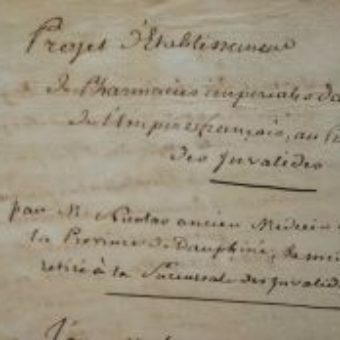 Projet d'Etablissement
de Pharmacies impériales da
de l'Empire français, au
des Invalides
par Mr. Nicolas ancien Médecin
la Province de Dauphiné,
retiré à la Succursale des Invalid